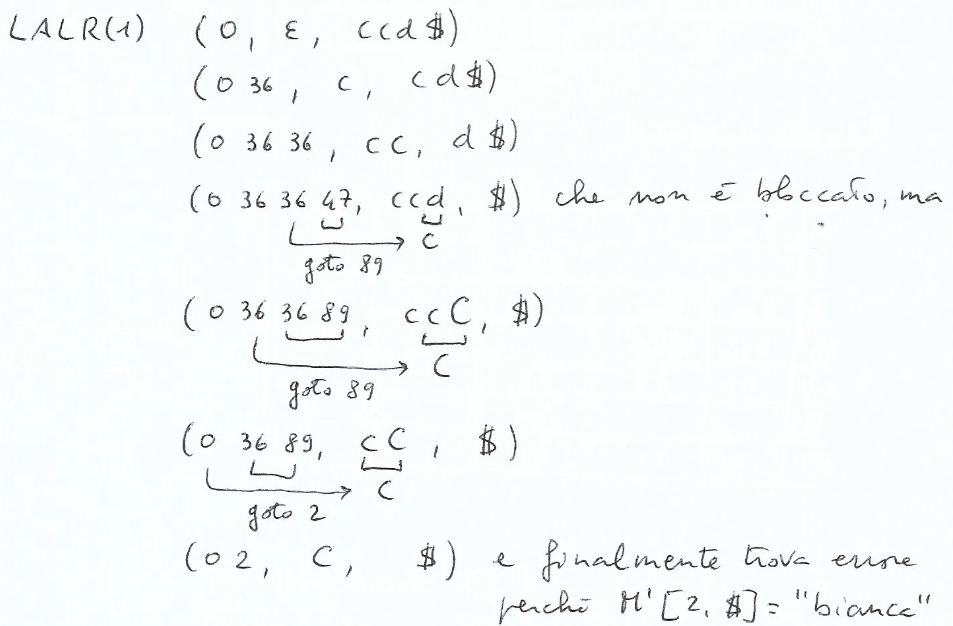 LALR(1) (0, ε, ccd$)
(0 36, c, cd$)
(0 36 36, cc, d$)
(0 36 36 47, ccd, $) che non è bloccato, ma
C
goto 89
(0 36 36 89, ccC, $)
C
goto 89
(0 36 89, cC, $)
C
goto 2
(0 2, C, $) e finalmente trova errore
perché M'[2, $] = "bianca"